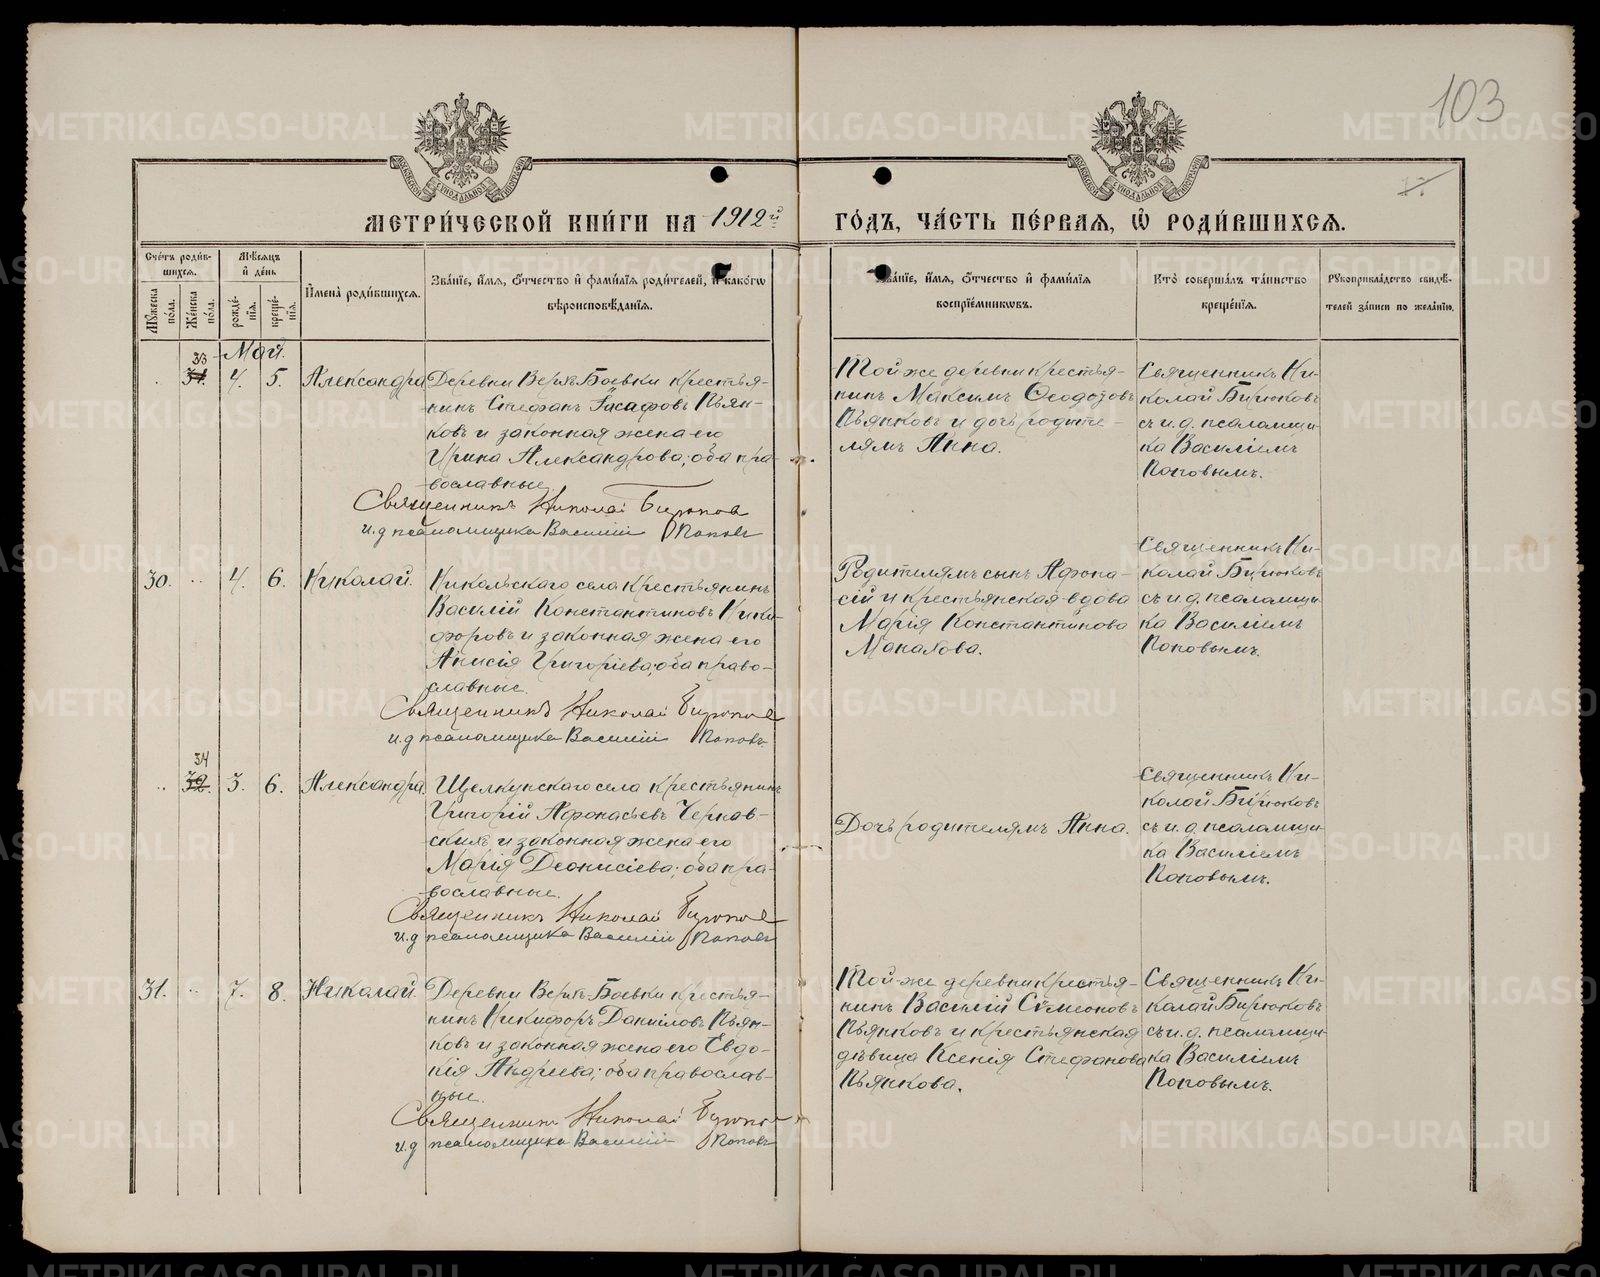 103
МЕТРИ́ЧЕСКОЙ КНИ́ГИ НА 1912й ГО́ДЪ, ЧА́СТЬ ПЕ́РВАЯ, Ѡ РОДИ́ВШИХСЯ.
Сче́тъ роди́вшихся.
Мѣ́сяцъ и҆ де́нь
Мꙋ́жеска по́ла.
Же́нска по́ла.
рожде́нїѧ.
креще́нїѧ.
И҆мена̀ роди́вшихся.
Зва́нїе, и҆́мѧ, ѻ҆́тчество и҆ фами́лїѧ роди́телей, и҆ како́гѡ вѣроисповѣ́данїѧ.
Зва́нїе, и҆́мѧ, ѻ҆́тчество и҆ фами́лїѧ воспрїе́мниковъ.
Кто̀ соверша́лъ та́инство креще́нїѧ.
Рꙋкоприкла́дство свидѣ́телей за́писи по жела́нїю.
Май.
33
31. 4. 5. Александра
Деревни Верхъ-Боевки крестья-
нинъ Стефанъ Іасафовъ Пьян-
ковъ и законная жена его
Ирина Александрова; оба пра-
вославные.
Священникъ Николай Бирюковъ
и.д. псаломщика Василій Поповъ
Той же деревни крестья-
нинъ Максимъ Ѳеодозовъ
Пьянковъ и дочь родите-
лямъ Анна.
Священникъ Ни-
колай Бирюковъ
съ и.д. псаломщи-
ка Василіемъ
Поповымъ.
30. .. 4. 6. Николай.
Никольскаго села крестьянинъ
Василій Константиновъ Ники-
форовъ и законная жена его
Анисія Григоріева; оба право-
славные.
Священникъ Николай Бирюковъ
и.д псаломщика Василій Поповъ
Родителямъ сынъ Афона-
сій и крестьянская вдова
Марія Константинова
Священникъ Ни-
колай Бирюковъ
съ и.д. псаломщи-
ка Василіемъ
Поповымъ.
34
.. 32. 5. 6. Александра.
Щелкунскаго села крестьянинъ
Григорій Афонасьевъ Чернав-
скихъ и законная жена его
Марія Деонисіева; оба пра-
вославные.
Священникъ Николай Бирюковъ
и.д псаломщика Василій Поповъ
Дочь родителямъ Анна.
Священникъ Ни-
колай Бирюковъ
съ и.д. псаломщи-
ка Василіемъ
Поповымъ.
31. .. 7. 8. Николай.
Деревни Верхъ-Боевки крестья-
нинъ Никифоръ Даниловъ Пьян-
ковъ и законная жена его Евдо-
кія Андреева; оба православ-
ные.
Священникъ Николай Бирюковъ
и.д псаломщика Василій Поповъ
Той же деревни крестья-
нинъ Василій Сѵмеоновъ
Пьянковъ и крестьянская
дѣвица Ксенія Стефанова
Пьянкова.
Священникъ Ни-
колай Бирюковъ
съ и.д. псаломщи-
ка Василіемъ
Поповымъ.
METRIKI.GASO-URAL.RU